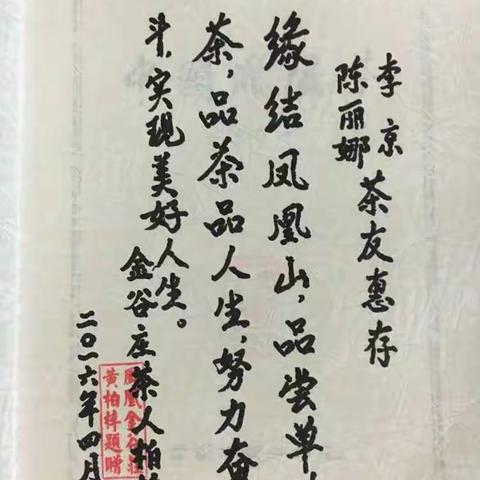 李京
陈丽娜 茶友惠存
缘结凤凰山,品尝单
茶,品茶品人生,努力奋
斗,实现美好人生。
金谷庄茶人柏
二〇一六年四月
凤凰金谷庄
黄柏梓题赠